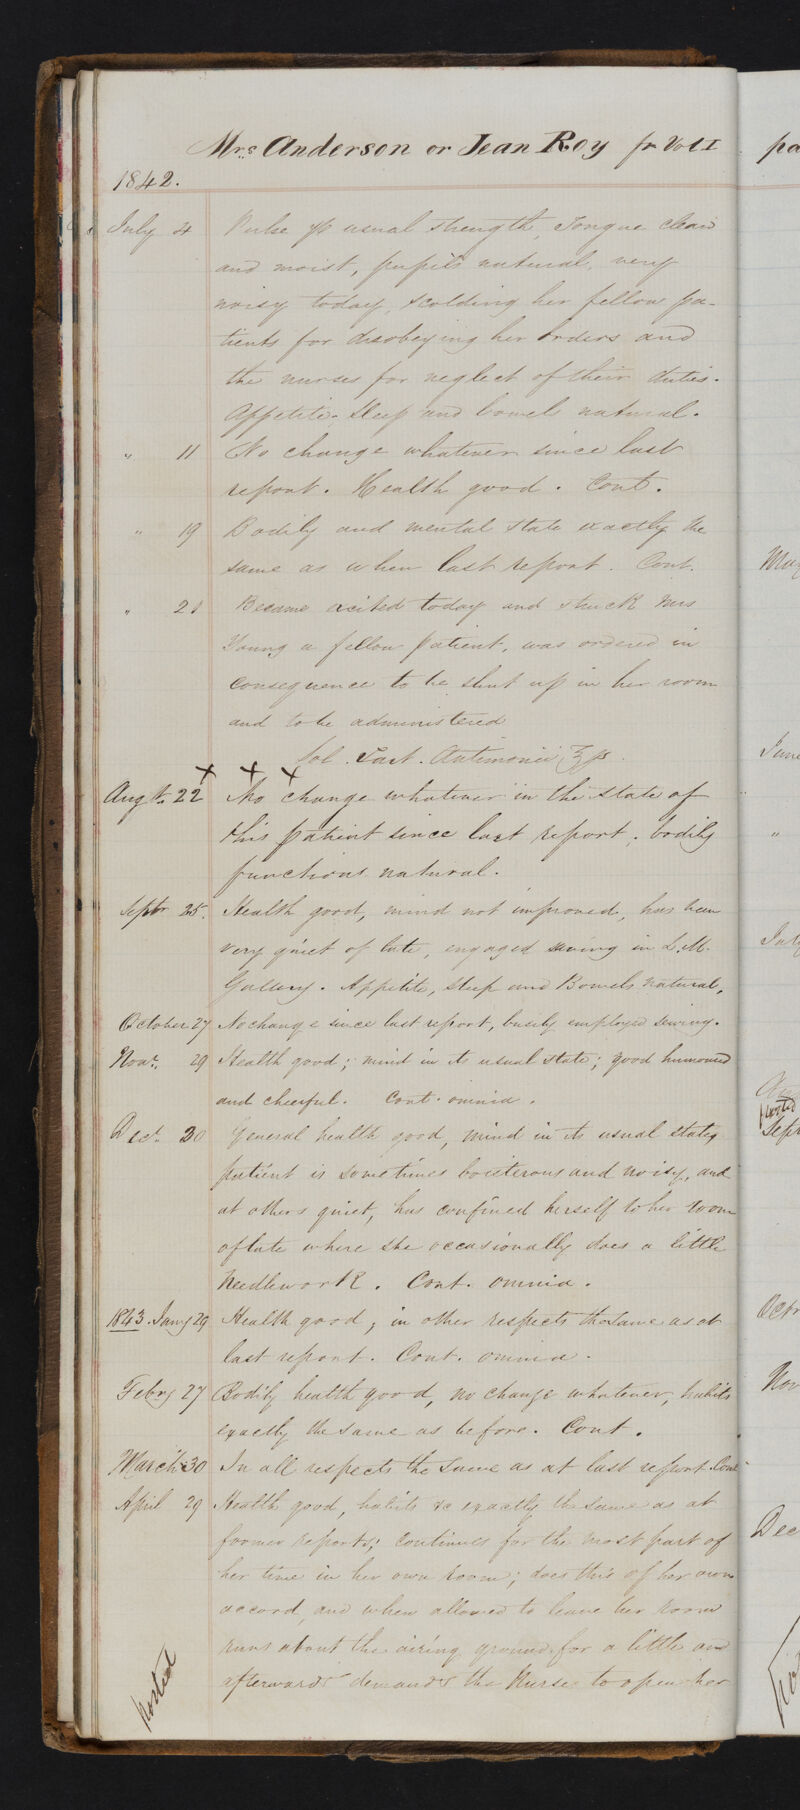 Mrs Anderson or Jean Roy fr Vol I
1842.
July 4 Pulse 76 usual strength, Tongue clean
and moist, pupils natural, very
noisy today, scolding her fellow pa-
tients for disobeying her orders and
the nurses for neglect of their duties.
Appetite, Sleep and bowels natural.
" 11 No change whatever since last
report. Health good. Cont.
" 19 Bodily and mental state exactly the
same as when last report. Cont.
" 21 Became excited today and struck Mrs
Young a fellow patient, was ordered in
consequence to be shut up in her room
and to be administered
Sol. Tart. Antimonii ℥ſs.
x x x
Augt. 22 No change whatever in the state of
this patient since last report. bodily
functions natural.
Septr 25. Health good, mind not improved, has been
very quiet of late, engaged sewing in L.M.
Gallery. Appetite, sleep and Bowels natural.
October 27 No change since last report, busily employed sewing.
Novr. 29 Health good; mind in its usual state; good humoured
and cheerful. Cont. omnia.
Dec. 30 General health good, mind in its usual state,
patient is sometimes boisterous and noisy, and
at others quiet, has confined herself to her room
of late where she occasionally does a little
Needlework. Cont. omnia.
1843. Jany 29 Health good; in other respects the same as at
last report. Cont. omnia.
Febry 27 Bodily health good, no change whatever, habits
exactly the same as before. Cont.
March 30 In all respects the same as at last report. Cont
April 29 Health good, habits &c exactly the same as at
former reports; continues for the most part of
her time in her own room; does this of her own
accord, and when allowed to leave her room
runs about the airing ground for a little and
afterwards demands the Nurse to open her
posted
pa
May
June
"
July
posted
Sepr
Octr
Nov
Dec